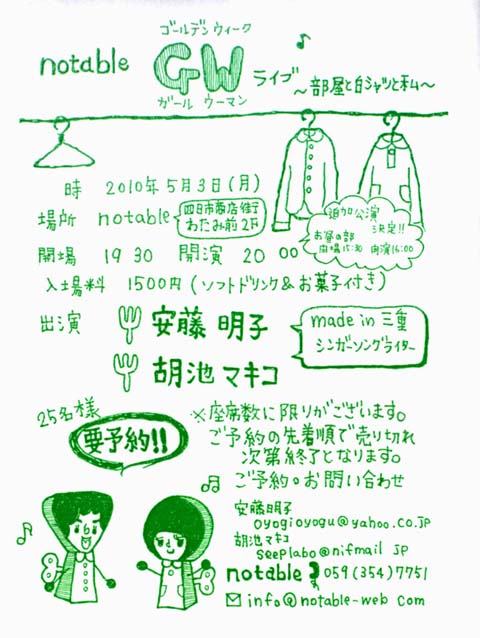 ゴールデン ウィーク
notable GW ライブ
ガール ウーマン
〜部屋と白シャツと私〜
時 2010年5月3日(月)
場所 notable
四日市商店街
わたみ前2F
追加公演
決定!!
お昼の部
開場15:30 開演16:00
開場 19 30 開演 20 00
入場料 1500円(ソフトドリンク&お菓子付き)
出演 安藤 明子
胡池マキコ
made in 三重
シンガーソングライター
25名様
要予約!!
※座席数に限りがございます。
ご予約の先着順で売り切れ
次第終了となります。
ご予約・お問い合わせ
安藤明子
oyogioyogu@yahoo.co.jp
胡池マキコ
seeplabo@nifmail JP
notable 059(354)7751
info@notable-web com